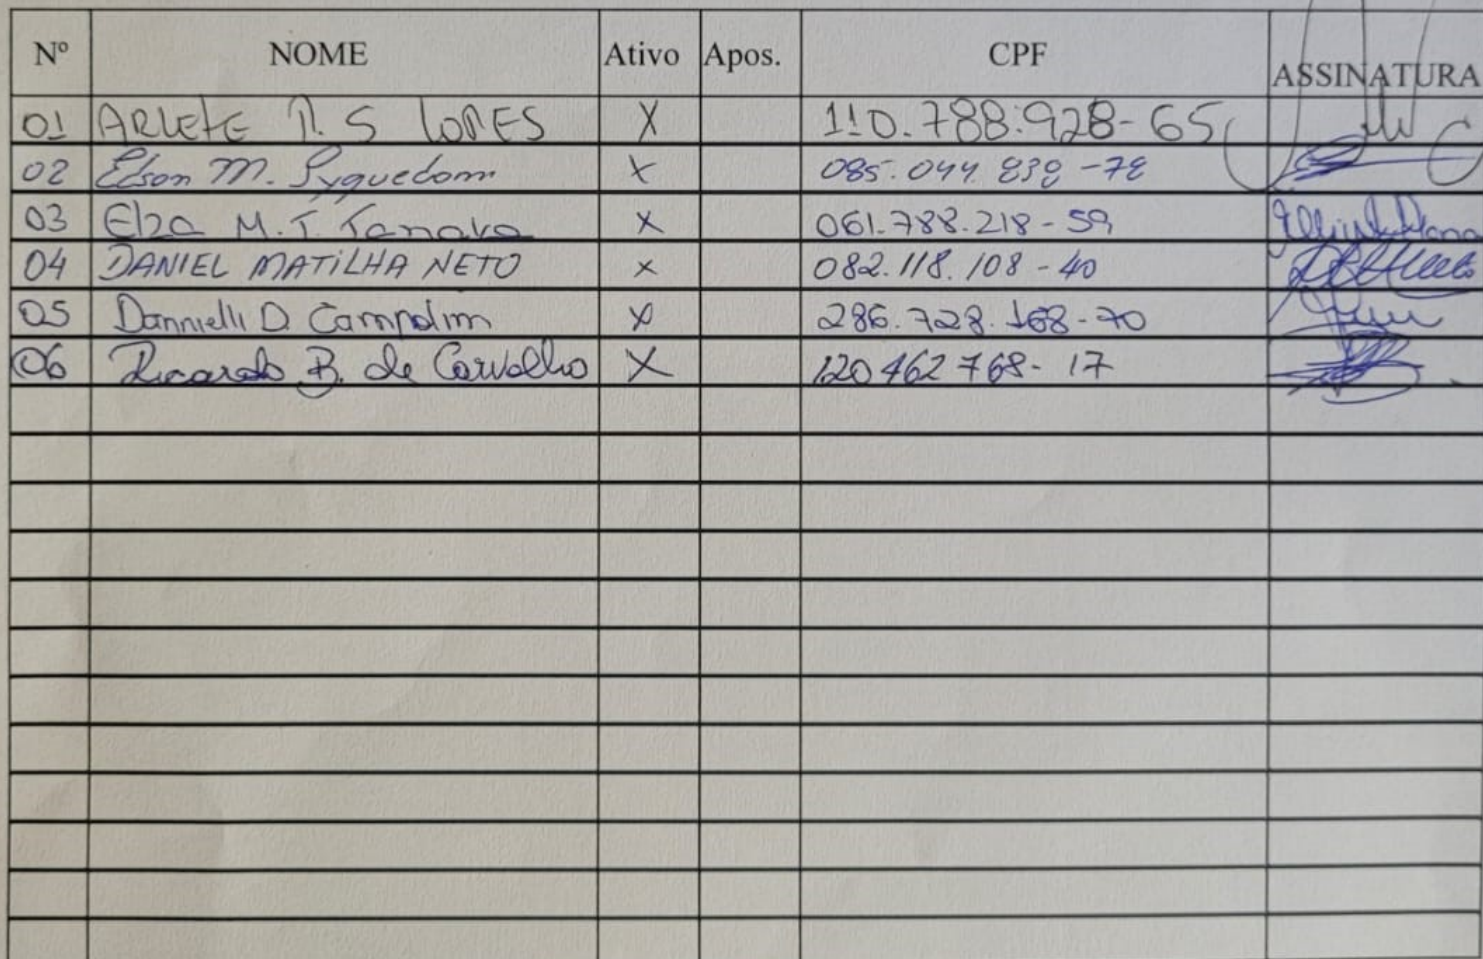 Nº NOME Ativo Apos. CPF ASSINATURA
01 ARLETE P. S LOPES X 110.788.928-65
02 Edson M. X 085.044.838-78
03 Elza M. T. Tanaka X 061.788.218-59
04 DANIEL MATILHA NETO X 082.118.108-40
05 Dannielli D. Campolim X 286.728.168-70
06 Ricardo B. de Carvalho X 120 462 768-17